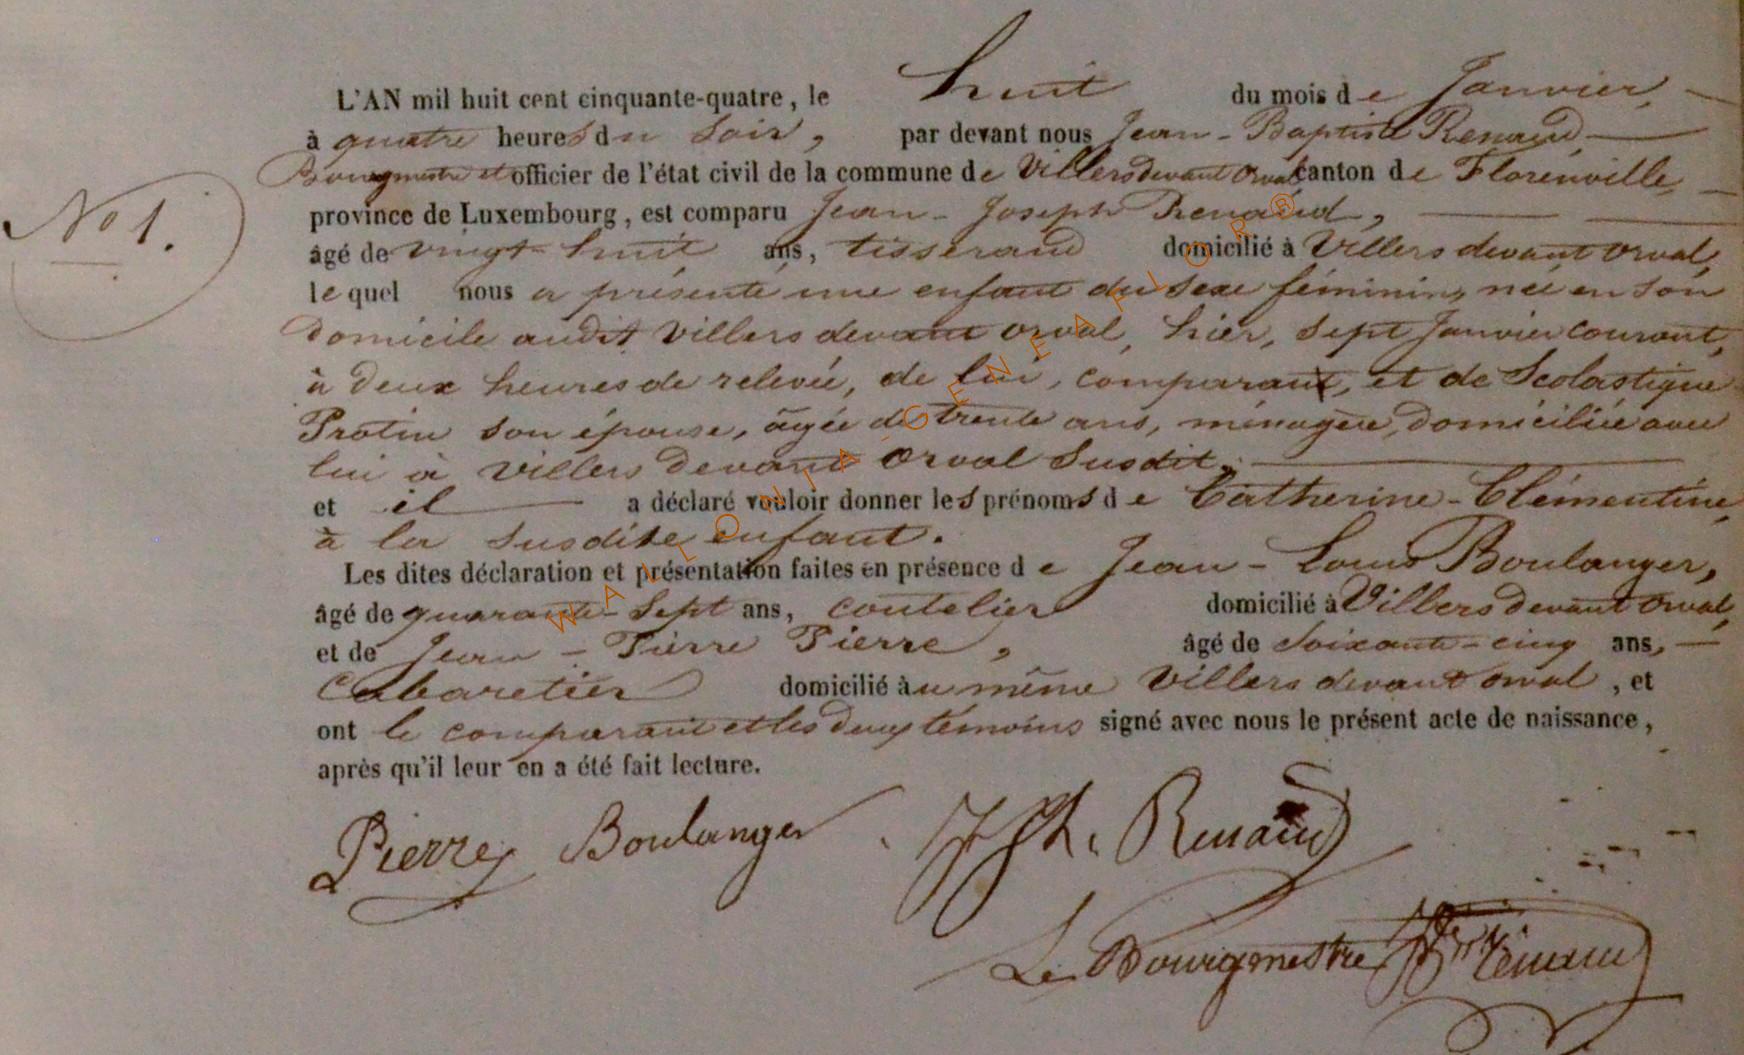 L'AN mil huit cent cinquante-quatre, le huit du mois de Janvier,
à quatre heures du soir, par devant nous Jean-Baptiste Renaud
Bourgmestre et officier de l'état civil de la commune de Villers devant Orval canton de Florenville,
N° 1.
province de Luxembourg, est comparu Jean-Joseph Renaud,
âgé de vingt-huit ans, tisserand domicilié à Villers devant Orval,
lequel nous a présenté une enfant du sexe féminin, née en son
domicile audit Villers devant Orval, hier, sept Janvier courant,
à deux heures de relevée, de lui, comparant, et de Scolastique
Protin son épouse, âgée de trente ans, ménagère, domiciliée avec
lui à Villers devant Orval susdit.
et il a déclaré vouloir donner les prénoms de Catherine-Clémentine
à la susdite enfant.
Les dites déclaration et présentation faites en présence de Jean-Louis Boulanger,
âgé de quarante-sept ans, coutelier domicilié à Villers devant Orval,
et de Jean-Pierre Pierre, âgé de soixante-cinq ans,
Cabaretier domicilié au même Villers devant Orval, et
ont le comparant et les deux témoins signé avec nous le présent acte de naissance,
après qu'il leur en a été fait lecture.
Pierre Boulanger JJh. Renaud
Le Bourgmestre Renaud
WALLONIA-GENEAFLOR®